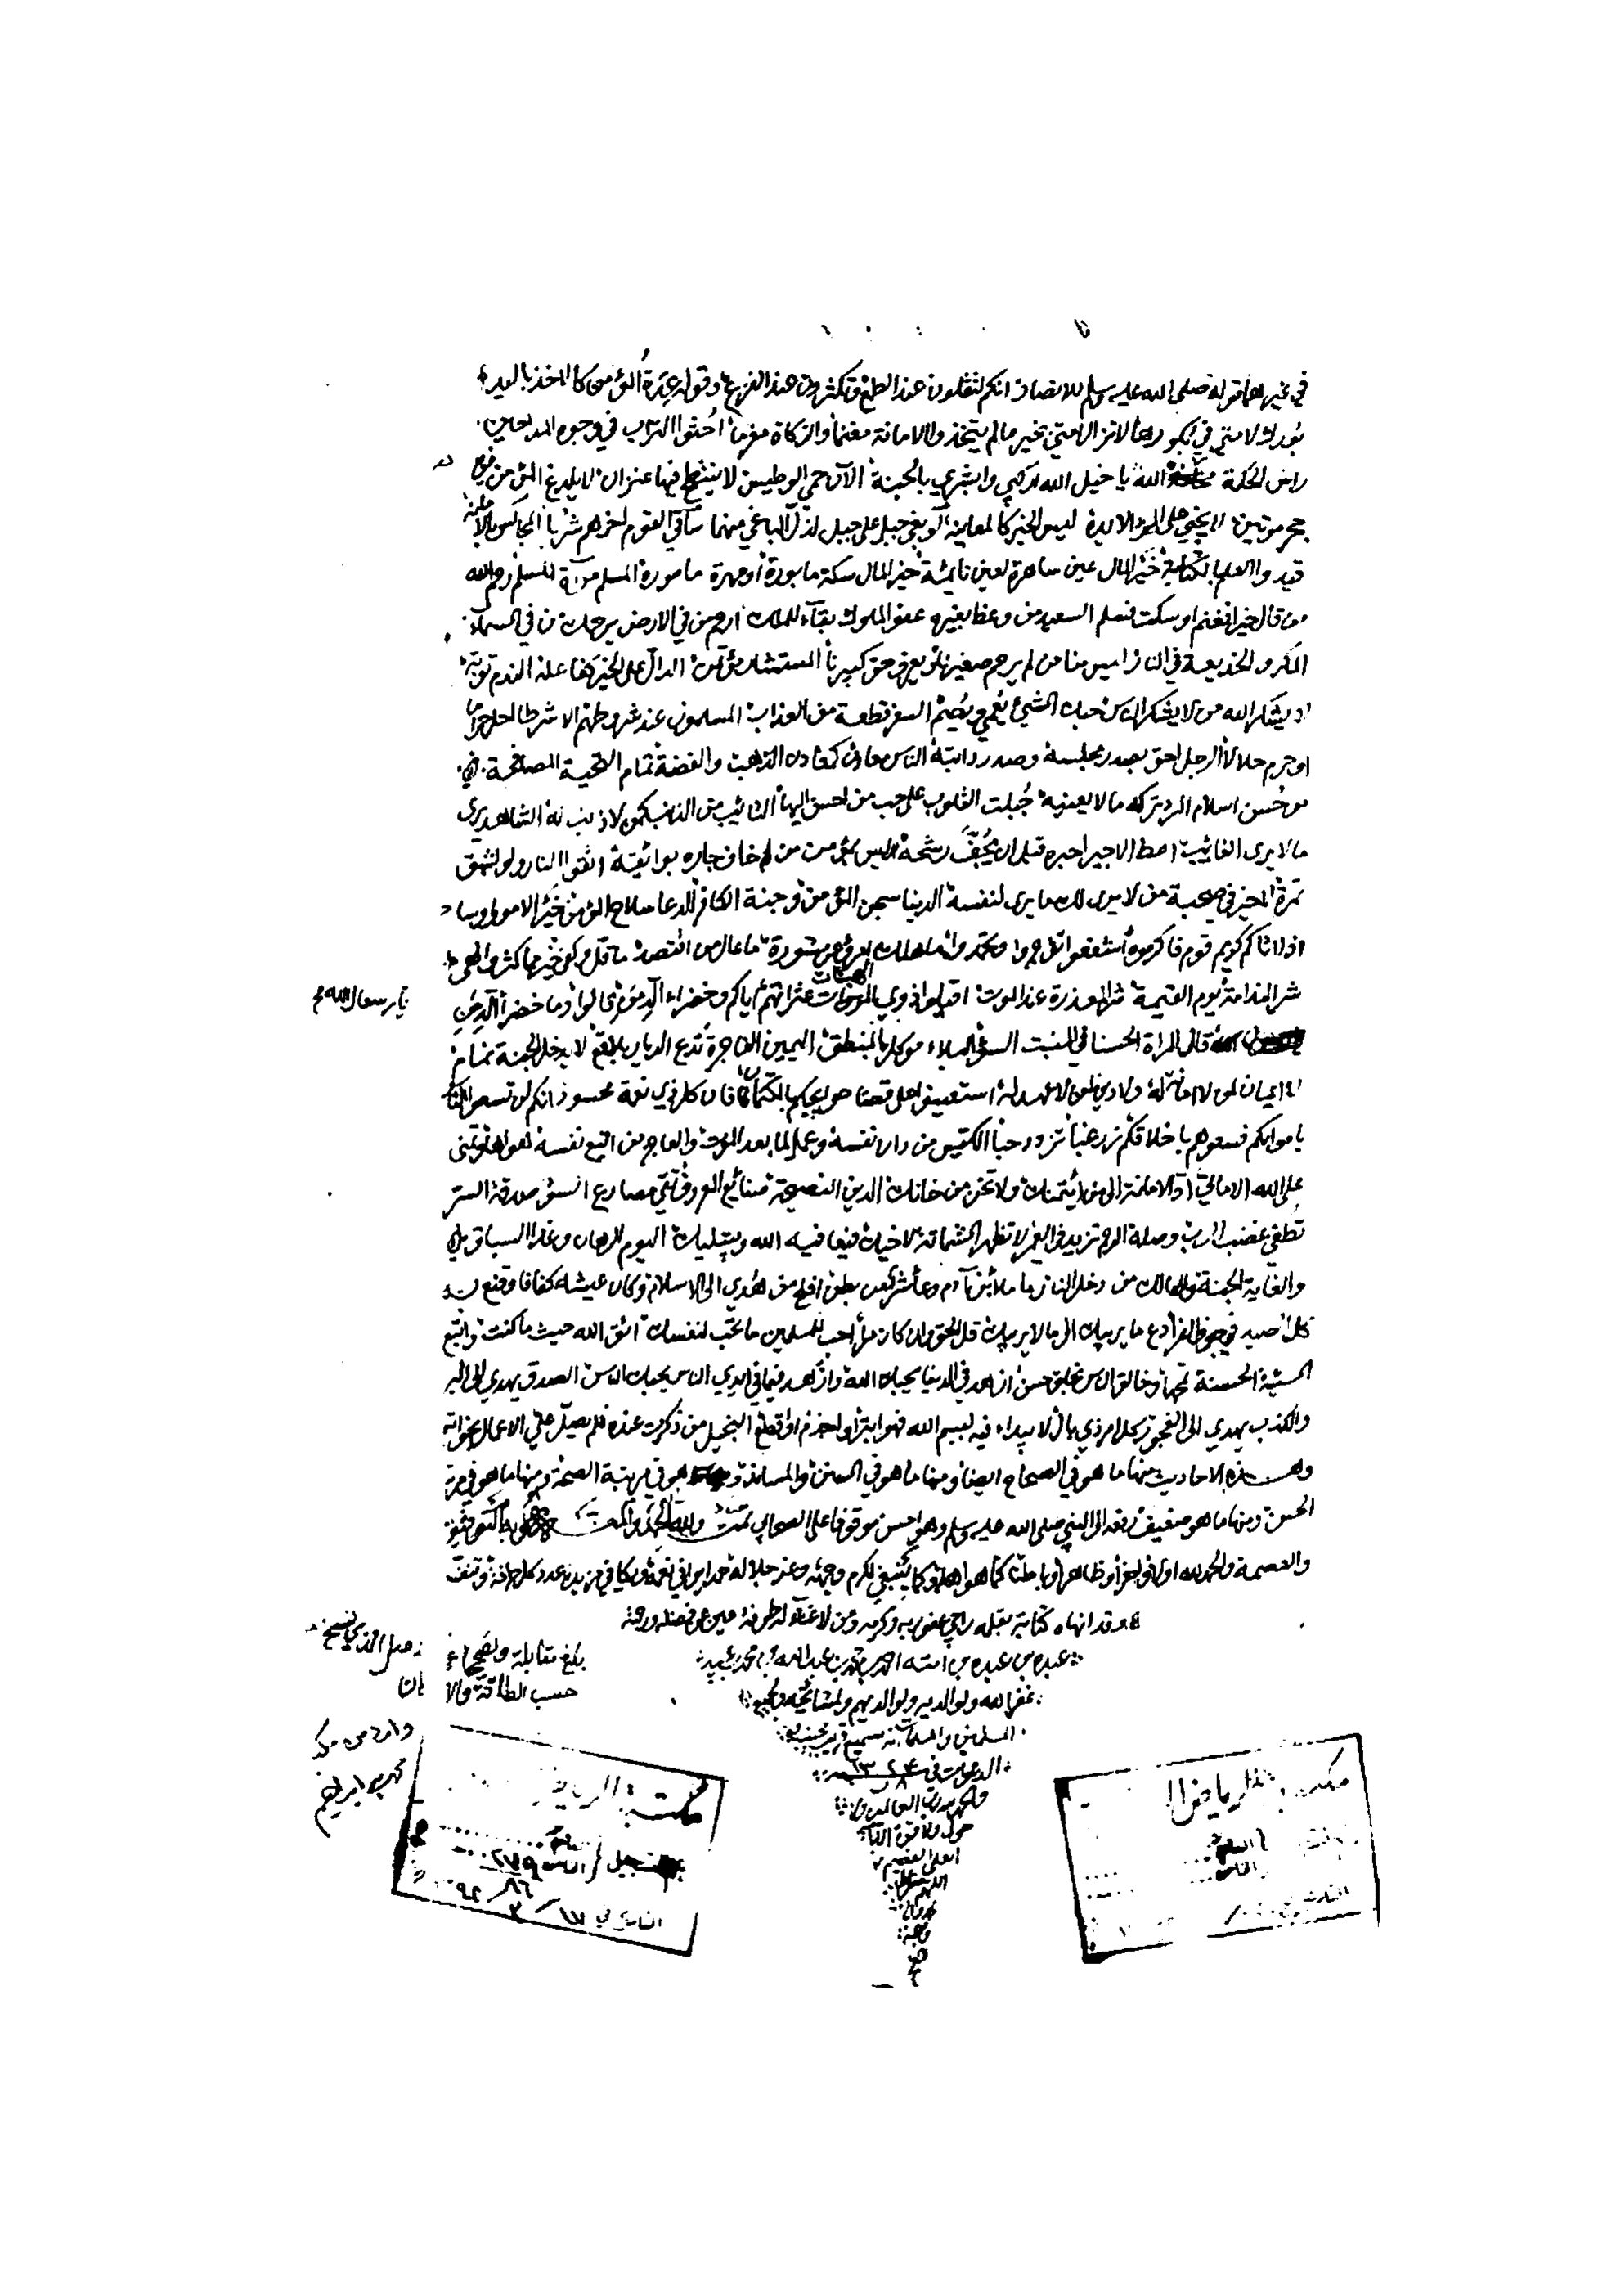 في غيرهما قوله صلى الله عليه وسلم للانصار انكم لتقلون عند الطمع وتكثرون عند الفزع وقوله عدة المؤمن كالاخذ باليد
بورك لامتي في بكورها لا تزال امتي بخير ما لم يتخذوا الامانة مغنما والزكاة مغرما احثوا التراب في وجوه المداحين
راس الحكمة مخافة الله يا خيل الله اركبي وابشري بالجنة الآن حمي الوطيس لا ينتطح فيها عنزان لا يلدغ المؤمن من
جحر مرتين لا يجني على المرء الا يده ليس الخبر كالمعاينة لو بغى جبل على جبل لذل الباغي منهما ساقي القوم اخرهم شربا المجالس بالامانة
قيدوا العلم بالكتابة خير المال عين ساهرة لعين نائمة خير المال سكة مابورة او مهرة مامورة المسلم مرآة المسلم رحم الله
من قال خيرا فغنم او سكت فسلم السعيد من وعظ بغيره عفو الملوك بقاء للملك ارحم من في الارض يرحمك من في السماء
المكر والخديعة في النار ليس منا من لم يرحم صغيرنا ويعرف حق كبيرنا المستشار مؤتمن الدال على الخير كفاعله الندم توبة
لا يشكر الله من لا يشكر الناس حبك الشيء يعمي ويصم السفر قطعة من العذاب المسلمون عند شروطهم الا شرطا احل حراما
او حرم حلالا الرجل احق بصدر مجلسه وصدر دابته الناس معادن كمعادن الذهب والفضة تمام التحية المصافحة
من حسن اسلام المرء تركه ما لا يعنيه جبلت القلوب على حب من احسن اليها التائب من الذنب كمن لا ذنب له الشاهد يرى
ما لا يرى الغائب اعط الاجير اجره قبل ان يجف رشحه ليس بمؤمن من خاف جاره بوائقه اتقوا النار ولو بشق
تمرة لا خير في صحبة من لا يرى لك ما يرى لنفسه الدنيا سجن المؤمن وجنة الكافر الدعا سلاح المؤمن خير الامور اوساطها
اذا اتاكم كريم قوم فاكرموه اشفعوا تؤجروا وتحمدوا ما هلك امرؤ عن مشورة ما عال من اقتصد ما قل وكفى خير مما كثر والهى
شر الندامة يوم القيمة شر المعذرة عند الموت اقيلوا ذوي الهيئات عثراتهم اياكم وخضراء الدمن قالوا وما خضراء الدمن
يا رسول الله
قال المراة الحسنا في المنبت السوء البلاء موكل بالمنطق اليمين الفاجرة تدع الديار بلاقع لا يدخل الجنة نمام
لا ايمان لمن لا امانة له ولا دين لمن لا عهد له استعينوا على قضا حوايجكم بالكتمان فان كل ذي نعمة محسود انكم لن تسعوا الناس
باموالكم فسعوهم باخلاقكم زر غبا تزدد حبا الكيس من دان نفسه وعمل لما بعد الموت والعاجز من اتبع نفسه هواها وتمنى
على الله الاماني اد الامانة الى من ائتمنك ولا تخن من خانك الدين النصيحة صنائع المعروف تقي مصارع السوء صدقة السر
تطفي غضب الرب وصلة الرحم تزيد في العمر لا تظهر الشماتة لاخيك فيعافيه الله ويبتليك اليوم الرهان وغدا السباق
والغاية الجنة والهالك من دخل النار ما ملأ ابن آدم وعاء شرا من بطن افلح من هدي الى الاسلام وكان عيشه كفافا وقنع به
كل الصيد في جوف الفرا دع ما يريبك الى ما لا يريبك قل الحق وان كان مرا احب للمسلمين ما تحب لنفسك اتق الله حيث ما كنت واتبع
السيئة الحسنة تمحها وخالق الناس بخلق حسن ازهد في الدنيا يحبك الله وازهد فيما في ايدي الناس يحبك الناس الصدق يهدي الى البر
والكذب يهدي الى الفجور كل امر ذي بال لا يبداء فيه ببسم الله فهو ابتر او اجذم او اقطع البخيل من ذكرت عنده فلم يصل علي الاعمال بخواتمها
وهذه الاحاديث منها ما هو في الصحاح ايضا ومنها ما هو في السنن والمساند هو في مرتبة الصحة ومنها ما هو في مرتبة
الحسن ومنها ما هو ضعيف رفعه الى النبي صلى الله عليه وسلم وهو احسن موقوفا على الصحابي تمت ولله الحمد والمنة
والعصمة والحمد لله اولا واخرا وظاهرا وباطنا كما هو اهله وكما ينبغي لكرم وجهه وعز جلاله حمدا يوافي نعمه ويكافي مزيده عدد كل
وقد انهاه كتابة بقلمه راجي عفو ربه وكرمه ومن لا غنا له طرفة عين عن فضله ورحمته
عبده بن عبده بن امته
غفر الله له ولوالديه ولوالديهم ولمشائخه ولجميع
المسلمين والمسلمات انه سميع قريب مجيب
الدعوات في
والحمد لله رب العالمين ولا
حول ولا قوة الا بالله
العلي العظيم
اللهم صل على
محمد وآله
وصحبه
بلغ مقابلة وتصحيحا
حسب الطاقة والا